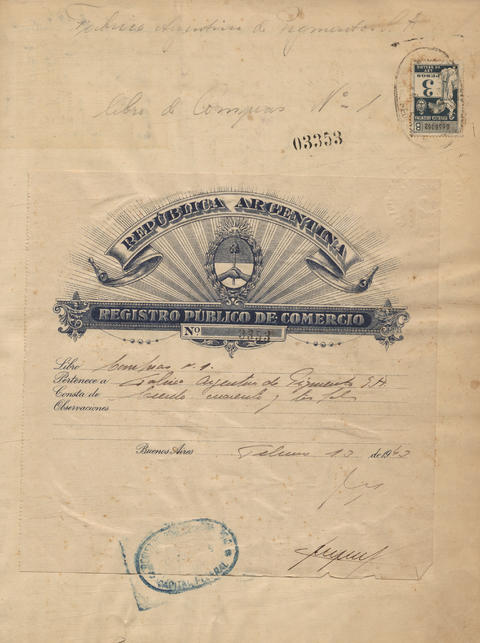 Fabrica Argentina de Pigmentos S. A
libro de Compras Nº 1
3
PESOS
03353
REPÚBLICA ARGENTINA
REGISTRO PÚBLICO DE COMERCIO
Nº 3353
Libro Compras n. 1.
Pertenece a Fabrica Argentina de Pigmentos S.A.
Consta de
Observaciones
Buenos Aires Febrero 10 de 194
CAPITAL FEDERAL